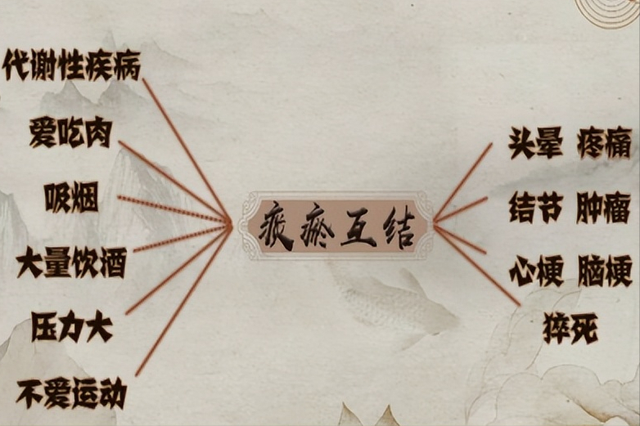 代谢性疾病
爱吃肉
吸烟
大量饮酒
压力大
不爱运动
痰瘀互结
头晕 疼痛
结节 肿瘤
心梗 脑梗
猝死